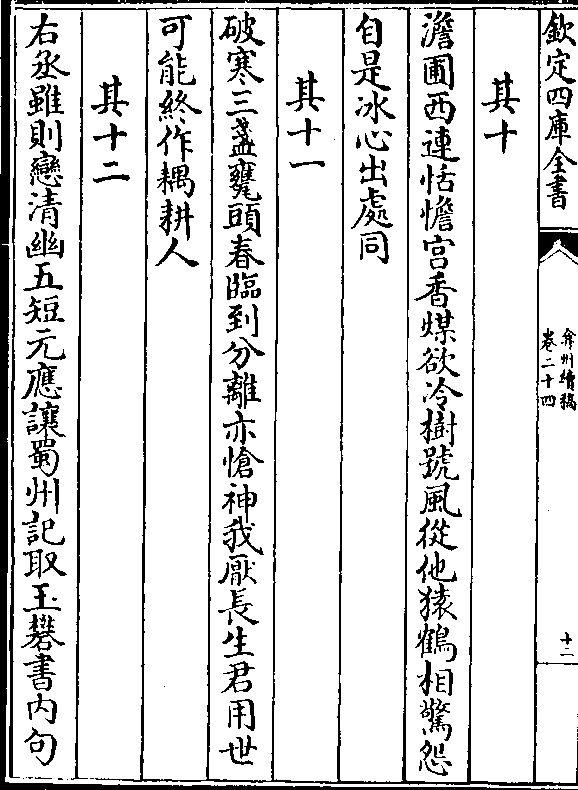 欽定四庫全書
弇州續稿
卷二十四
十二
其十
澹圃西連恬憺宫香煤欲冷樹號風從他猿鶴相驚怨
自是冰心出處同
其十一
破寒三盞甕頭春臨到分離亦愴神我厭長生君用世
可能終作耦耕人
其十二
右丞雖則戀清幽五短元應讓蜀州記取玉礬書内句